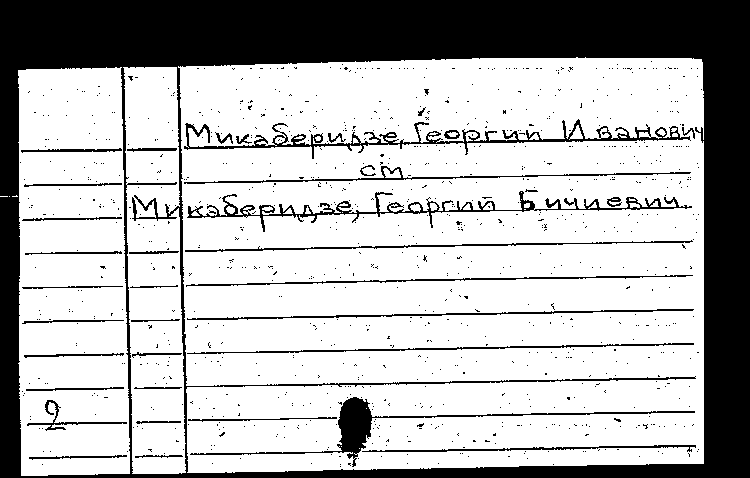 Микаберидзе, Георгий Иванович
см
Микаберидзе, Георгий Бичиевич.
2